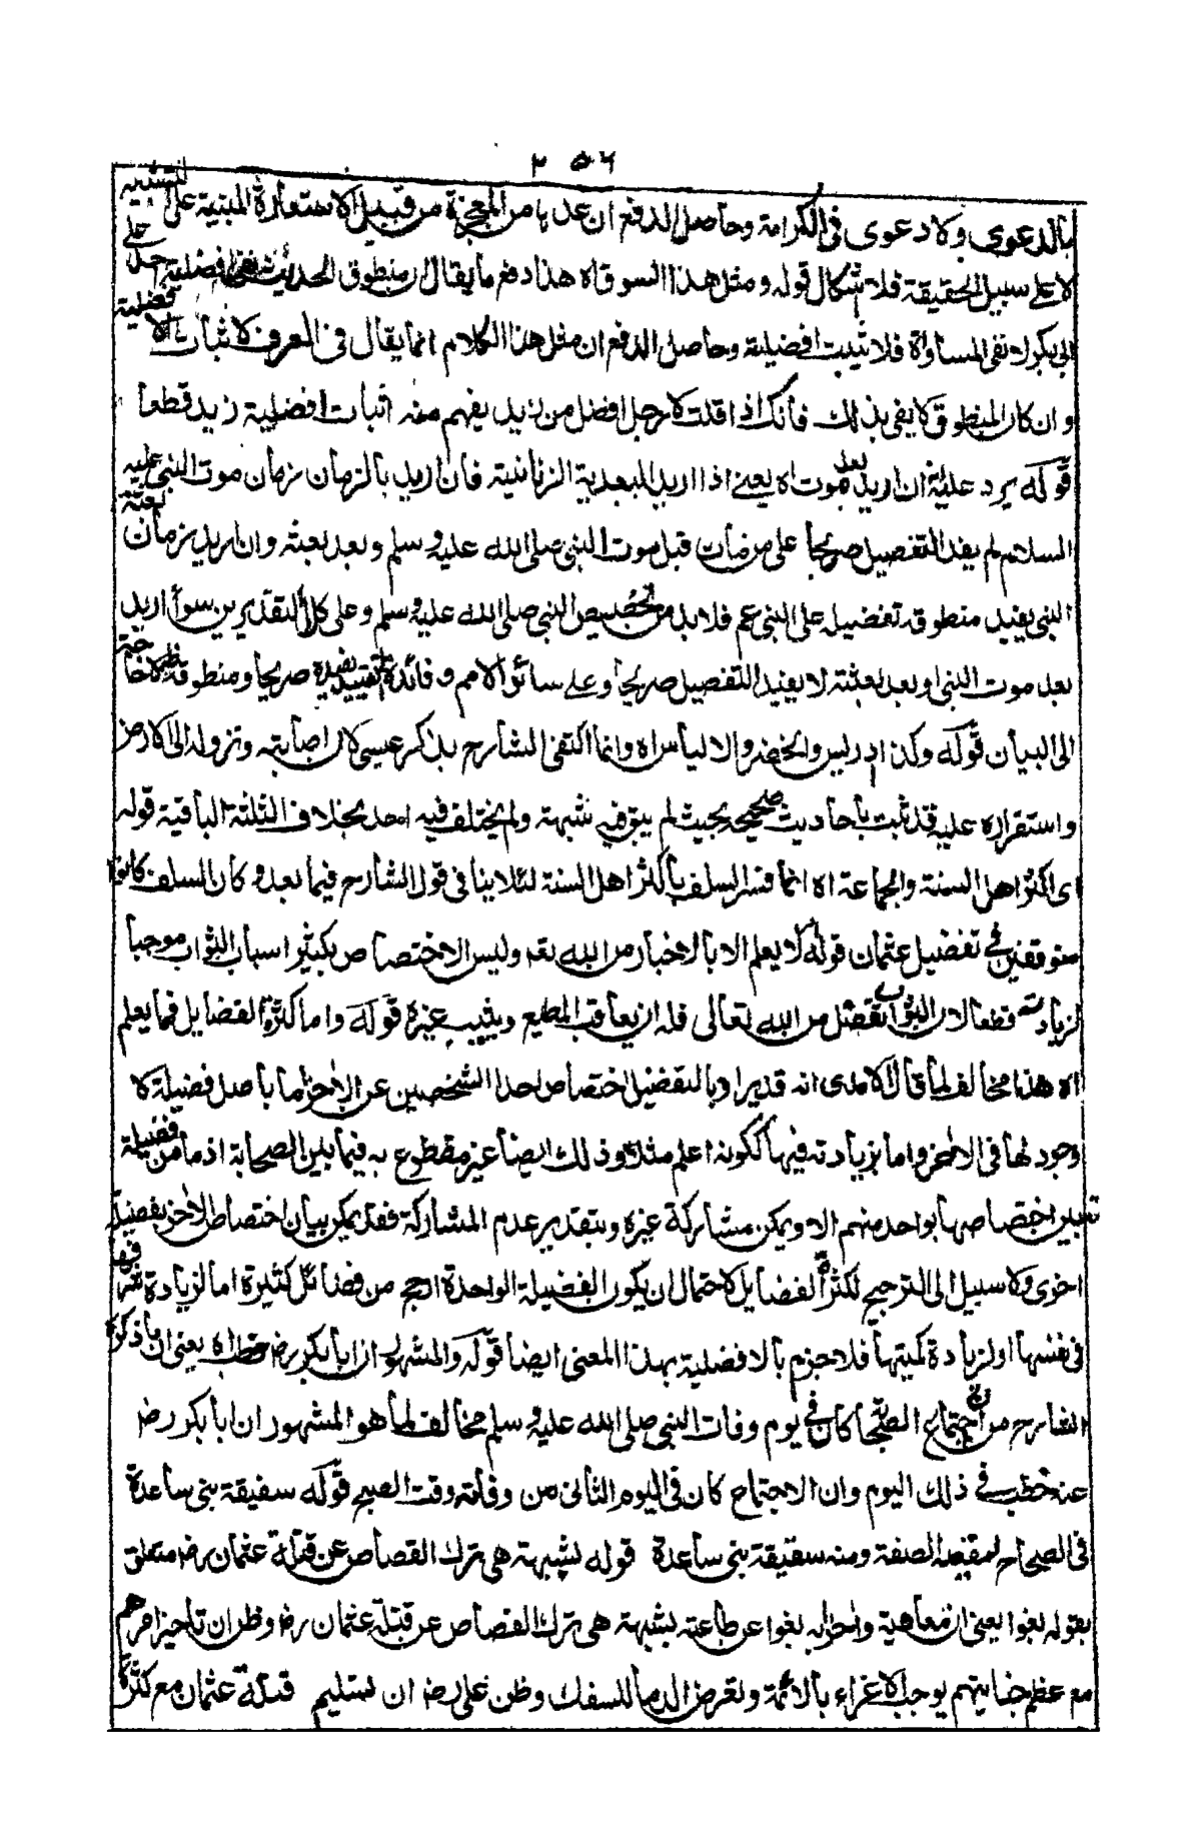 ٢٥٦
بالدعوى ولا دعوى فى الكرامة وحاصل الدفع ان عدها من المعجزة من قبيل الاستعارة المبنية على التشبيه
لا على سبيل الحقيقة فلا اشكال قوله ومثل هذا السوق اه هذا دفع ما يقال ان منطوق الحديث نفى افضلية احد على
ابى بكر لا نفى المساواة فلا تثبت افضليته وحاصل الدفع ان مثل هذا الكلام انما يقال فى العرف لاثبات الافضلية
وان كان المنطوق لا يفى بذلك فانك اذا قلت لا رجل افضل من زيد يفهم منه اثبات افضلية زيد قطعا
قوله يرد عليه ان اريد بعد موت اه يعنى اذا اريد البعدية الزمانية فان اريد بالزمان زمان موت النبى عليه
السلام لم يفد التفضيل صريحا على من مات قبل موت النبى صلى الله عليه وسلم وبعد بعثته وان اريد زمان بعثة
النبى يفيد منطوقه تفضيله على النبى عم فلا بد من تخصيص النبى صلى الله عليه وسلم وعلى كلا التقديرين سواء اريد
بعد موت النبى او بعد بعثته لا يفيد التفضيل صريحا وعلى سائر الامم وفائدة التقييد صريحا ومنطوقه
الى البيان قوله وكذا ادريس والخضر والالياس اه وانما اكتفى الشارح بذكر عيسى لان اصابته ونزوله الى الارض
واستقراره عليه قد ثبت باحاديث صحيحة بحيث لم يبق فيه شبهة ولم يختلف فيه احد بخلاف الثلثة الباقية قوله
اى اكثر اهل السنة والجماعة اه انما فسر السلف باكثر اهل السنة لئلا ينافى قول الشارح فيما بعد وكان السلف كانوا
متوقفين فى تفضيل عثمان قوله لا يعلم الا بالاخبار من الله تعم وليس الاختصاص بكثير اسباب الثواب موجبا
لزيادته قطعا لان الثواب تفضل من الله تعالى فله ان يعاقب المطيع ويثيب غيره قوله واما كثرة الفضايل فما يعلم
اه هذا مخالف لما قال الآمدى انه قد يراد بالتفضيل اختصاص احد الشخصين عن الاخر اما باصل فضيلة لا
وجود لها فى الاخر واما بزيادته فيها ككونه اعلم مثلا وذلك ايضا غير مقطوع به فيما بين الصحابة اذ ما من فضيلة
تبين اختصاصها بواحد منهم الا ويمكن مشاركة غيره وبتقدير عدم المشاركة فقد يمكن بيان اختصاص الاخر بفضيلة
اخرى ولا سبيل الى الترجيح لكثرة الفضايل لاحتمال ان يكون الفضيلة الواحدة ارجح من فضائل كثيرة اما لزيادة شرفها
فى نفسها او لزيادة كميتها فلا جزم بالافضلية بهذا المعنى ايضا قوله والمشهور ان ابا بكر رض خطب اه يعنى ان ما ذكره
الشارح من ان اجتماع الصحابة كان فى يوم وفات النبى صلى الله عليه وسلم مخالف لما هو المشهور ان ابا بكر رض
عنه خطب فى ذلك اليوم وان الاجتماع كان فى اليوم الثانى من وفاته وقت الصبح قوله سقيفة بنى ساعدة
فى الصحاح السقيفة الصفة ومنه سقيفة بنى ساعدة قوله لشبهة هى ترك القصاص عن قتلة عثمان رض متعلق
بقوله بغوا يعنى ان معاوية واحزابه بغوا عن طاعته لشبهة هى ترك القصاص عن قتلة عثمان رض وظن ان تأخير امرهم
مع عظم جنايتهم يوجب الاغراء بالائمة وتعرض الدماء للسفك وظن على رض ان تسليم قتلة عثمان مع كثرة